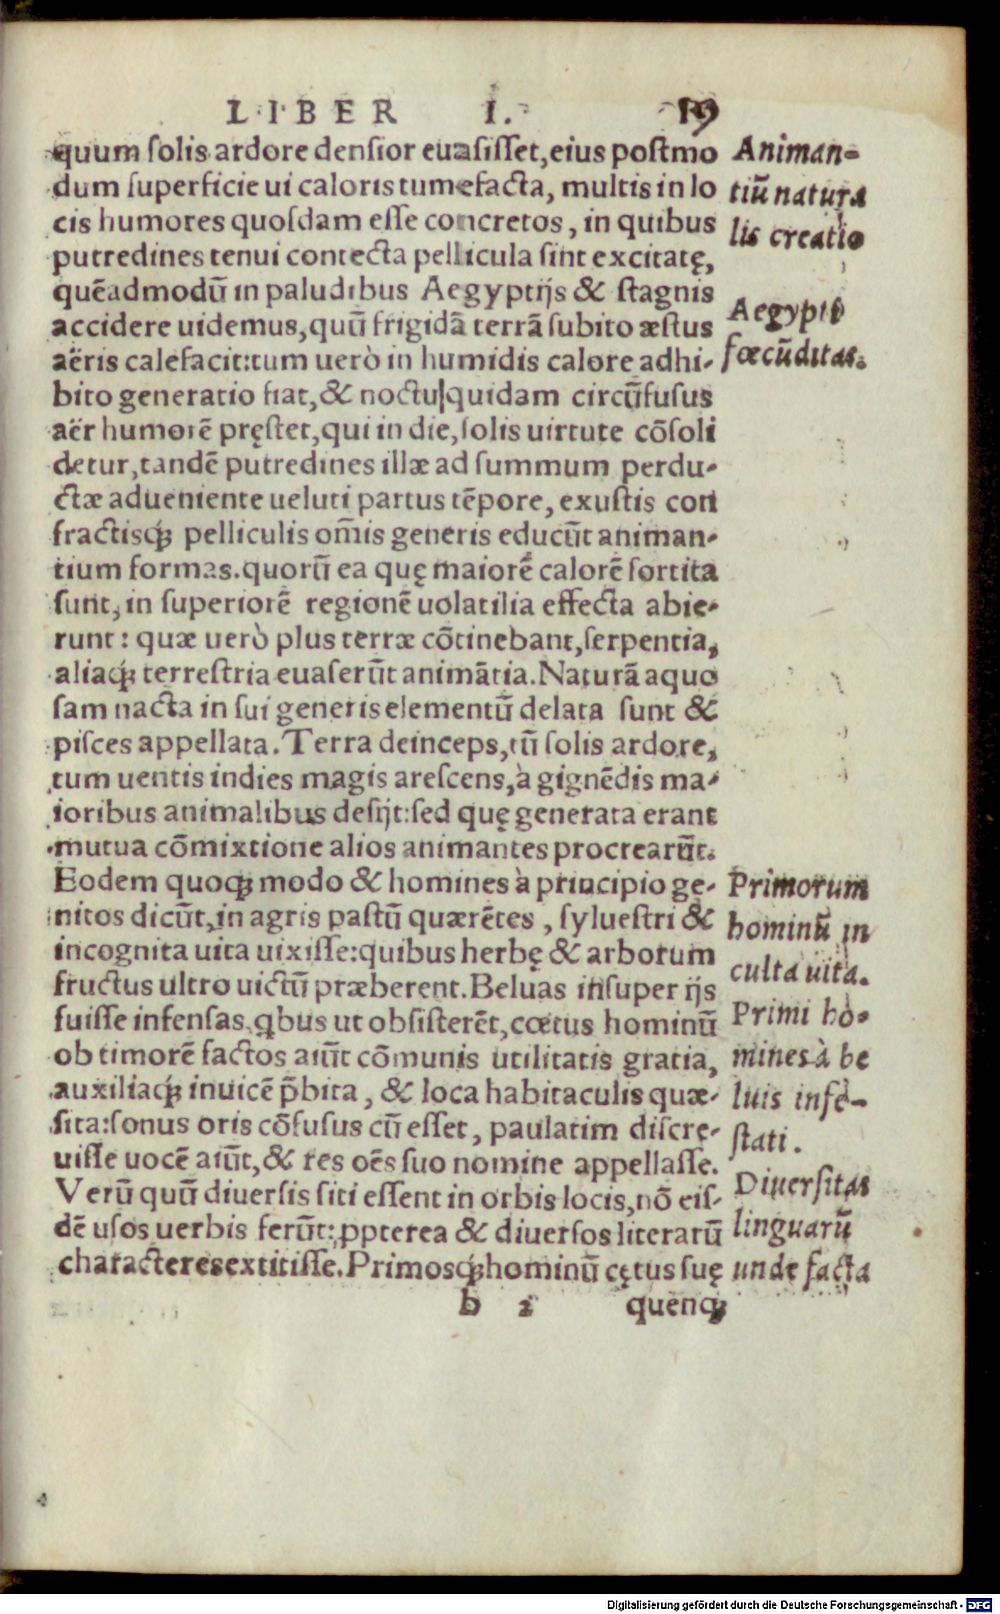 LIBER I. 19
quum solis ardore densior euasisset, eius postmo
dum superficie ui caloris tumefacta, multis in lo
cis humores quosdam esse concretos, in quibus
putredines tenui contecta pellicula sint excitatę,
quēadmodū in paludibus Aegyptijs & stagnis
accidere uidemus, quū frigidā terrā subito æstus
aëris calefacit: tum uerò in humidis calore adhi-
bito generatio fiat, & noctu quidam circūfusus
aër humorē pręstet, qui in die, solis uirtute cōsoli
detur, tandē putredines illæ ad summum perdu-
ctæ adueniente ueluti partus tēpore, exustis con
fractisq́ꝫ pelliculis om̄is generis educūt animan-
tium formas. quorū ea quę maiorē calorē sortita
sunt, in superiorē regionē uolatilia effecta abie-
runt: quæ uerò plus terræ cōtinebant, serpentia,
aliaq́ꝫ terrestria euaserūt animātia. Naturā aquo
sam nacta in sui generis elementū delata sunt &
pisces appellata. Terra deinceps, tū solis ardore,
tum uentis indies magis arescens, à gignēdis ma-
ioribus animalibus desijt: sed quę generata erant
mutua cōmixtione alios animantes procrearūt.
Eodem quoqꝫ modo & homines à principio ge-
nitos dicūt, in agris pastū quærētes, syluestri &
incognita uita uixisse: quibus herbę & arborum
fructus ultro uictū præberent. Beluas insuper ijs
fuisse infensas, q̃bus ut obsisterēt, cœtus hominū
ob timorē factos aiūt cōmunis utilitatis gratia,
auxiliaq́ꝫ inuicē p̄bita, & loca habitaculis quæ-
sita: sonus oris cōfusus cū esset, paulatim discre-
uisse uocē aiūt, & res oēs suo nomine appellasse.
Verū quū diuersis siti essent in orbis locis, nō eis-
dē usos uerbis ferūt: ꝓpterea & diuersos literarū
characteres extitisse. Primosq́ꝫ hominū cętus suę
b 2 quenqꝫ
Animan-
tiū natura
lis creatio
Aegypti
fœcūditas.
Primorum
hominū in
culta uita.
Primi ho-
mines à be
luis infe-
stati.
Diuersitas
linguarū
unde facta
Digitalisierung gefördert durch die Deutsche Forschungsgemeinschaft - DFG